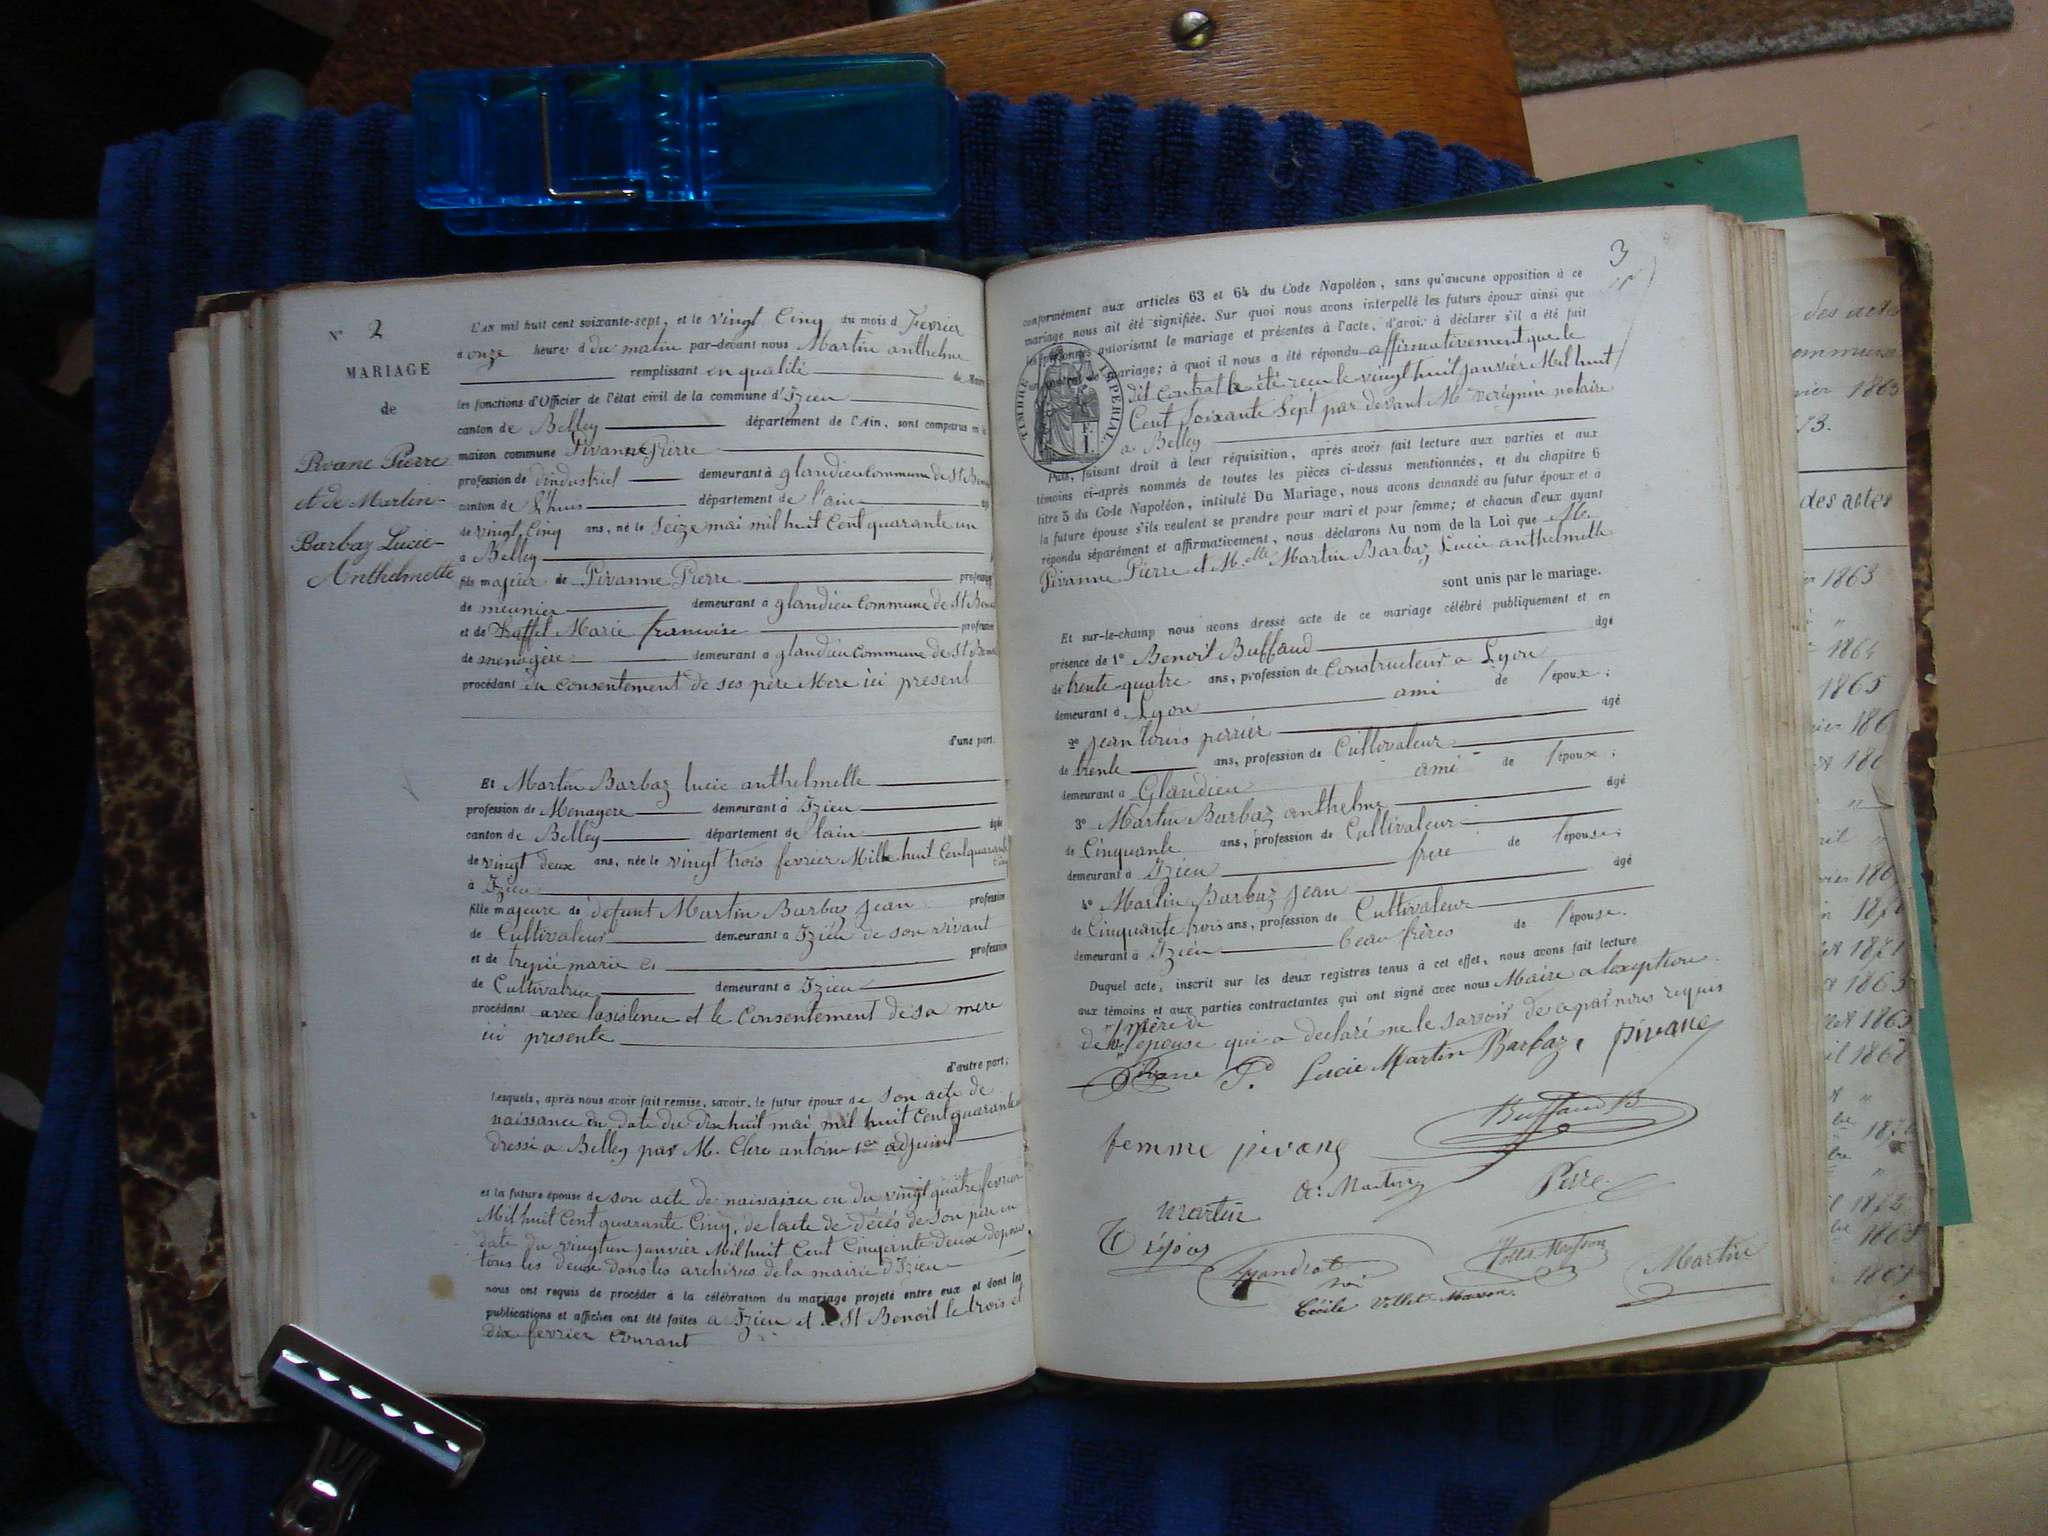 N° 2
MARIAGE
de
Pivane Pierre
et de Martin
Barbaz Lucie
Anthelmette
L'an mil huit cent soixante-sept, et le vingt Cinq du mois d fevrier
à onze heure d du matin par-devant nous Martin anthelme
remplissant en qualité de Maire
les fonctions d'Officier de l'état civil de la commune d'Izieu
canton de Belley département de l'Ain, sont comparus en la
maison commune Pivanne Pierre
profession de dindustriel demeurant à glandieu Commune de St Benoit
canton de L'huis département de l'ain
de vingt Cinq ans, né le seize mai mil huit Cent quarante un
à Belley
fils majeur de Pivanne Pierre profession
de meunier demeurant à glandieu Commune de St Benoit
et de Marie francoise profession
de menagère demeurant à glandieu Commune de St Benoit
procédant du consentement de ses père Mere ici present
d'une part.
Et Martin Barbaz lucie anthelmette
profession de Menagere demeurant à Izieu
canton de Belley département de lain âgée
de vingt deux ans, née le vingt trois fevrier Mille huit Cent quarante
Cinq
à Izieu
fille majeure de defunt Martin Barbaz Jean profession
de Cultivateur demeurant à Izieu de son vivant
et de marie profession
de Cultivatrice demeurant à Izieu
procédant avec lasistence et le Consentement de sa mere
ici presente
d'autre part;
Lesquels, après nous avoir fait remise, savoir, le futur époux de son acte de
naissance en date du dix huit mai mil huit Cent quarante
dressé a Belley par M. Clerc antoine 1er adjoint
et la future épouse de son acte de naissance en du vingt quatre fevrier
Mil huit Cent quarante Cinq, de lacte de décés de son père en
date du vingt un janvier Mil huit Cent Cinquante deux deposés
tous les deux dans les archives de la mairie d'Izieu
nous ont requis de procéder à la célébration du mariage projeté entre eux et dont les
publications et affiches ont été faites a Izieu et a St Benoit le trois et
dix fevrier Courant
3
conformément aux articles 63 et 64 du Code Napoléon, sans qu'aucune opposition à ce
mariage nous ait été signifiée. Sur quoi nous avons interpellé les futurs époux ainsi que
les personnes autorisant le mariage et présentes à l'acte, d'avoir à déclarer s'il a été fait
un contrat de mariage; à quoi il nous a été répondu affirmativement que le
dit Contrat a été recu le vingt huit janvier Mil huit
Cent Soixante Sept par devant Me notaire
a Belley
TIMBRE IMPÉRIAL
Puis, faisant droit à leur réquisition, après avoir fait lecture aux parties et aux
témoins ci-après nommés de toutes les pièces ci-dessus mentionnées, et du chapitre 6
titre 5 du Code Napoléon, intitulé Du Mariage, nous avons demandé au futur époux et à
la future épouse s'ils veulent se prendre pour mari et pour femme; et chacun d'eux ayant
répondu séparément et affirmativement, nous déclarons Au nom de la Loi que Mr.
Pivanne Pierre et Melle Martin Barbaz Lucie anthelmette
sont unis par le mariage.
Et sur-le-champ nous avons dressé acte de ce mariage célébré publiquement et en
présence de 1° Benoit Buffaud âgé
de trente-quatre ans, profession de Constructeur a Lyon
demeurant à Lyon ami de l'époux;
2° Jean louis perrier âgé
de trente ans, profession de Cultivateur
demeurant à Glandieu ami de l'époux;
3° Martin Barbaz anthelme âgé
de Cinquante ans, profession de Cultivateur
demeurant à Izieu frere de l'épouse;
4° Martin Barbaz Jean âgé
de Cinquante trois ans, profession de Cultivateur
demeurant à Izieu beau frères de l'épouse.
Duquel acte, inscrit sur les deux registres tenus à cet effet, nous avons fait lecture
aux témoins et aux parties contractantes qui ont signé avec nous Maire a lexeption
mère de
de l'épouse qui a declaré ne le savoir de ce par nous requis
Lucie Martin Barbaz pivane
femme pivane
Buffaud B
A. Martin
martin
Cécile
Martin
des actes
1863
73.
des actes
1863
1864
1865
1871
1863
1868
1872